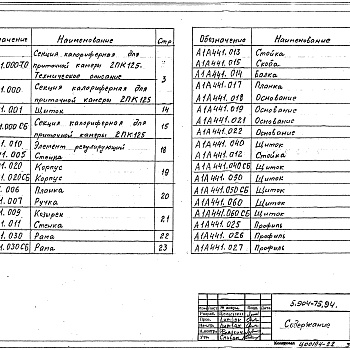 начение Наименование Стр.
1.000ТО Секция калориферная для
приточной камеры 2ПК125.
Техническое описание 3
1.000 Секция калориферная для
приточной камеры 2ПК125
1.001 Щиток 14
1.000 СБ Секция калориферная для
приточной камеры 2ПК125 15
1.010 Элемент регулирующий 18
1.005 Стенка
1.020 Корпус 19
1.020СБ Корпус
1.006 Планка 20
1.007 Ручка
1.009 Козырек 21
1.011 Стенка
1.030 Рама 22
1.030СБ Рама 23
Обозначение Наименование
А1А441.013 Стойка
А1А441.015 Скоба
А1А441.014 Балка
А1А441.017 Планка
А1А441.018 Основание
А1А441.019 Основание
А1А441.021 Основание
А1А441.022 Основание
А1А441.040 Щиток
А1А441.012 Стойка
А1А441.040СБ Щиток
А1А441.050 Щиток
А1А441.050СБ Щиток
А1А441.060 Щиток
А1А441.060СБ Щиток
А1А441.025 Профиль
А1А441.026 Профиль
А1А441.027 Профиль
5.904-75.94.
Содержание
Копировал